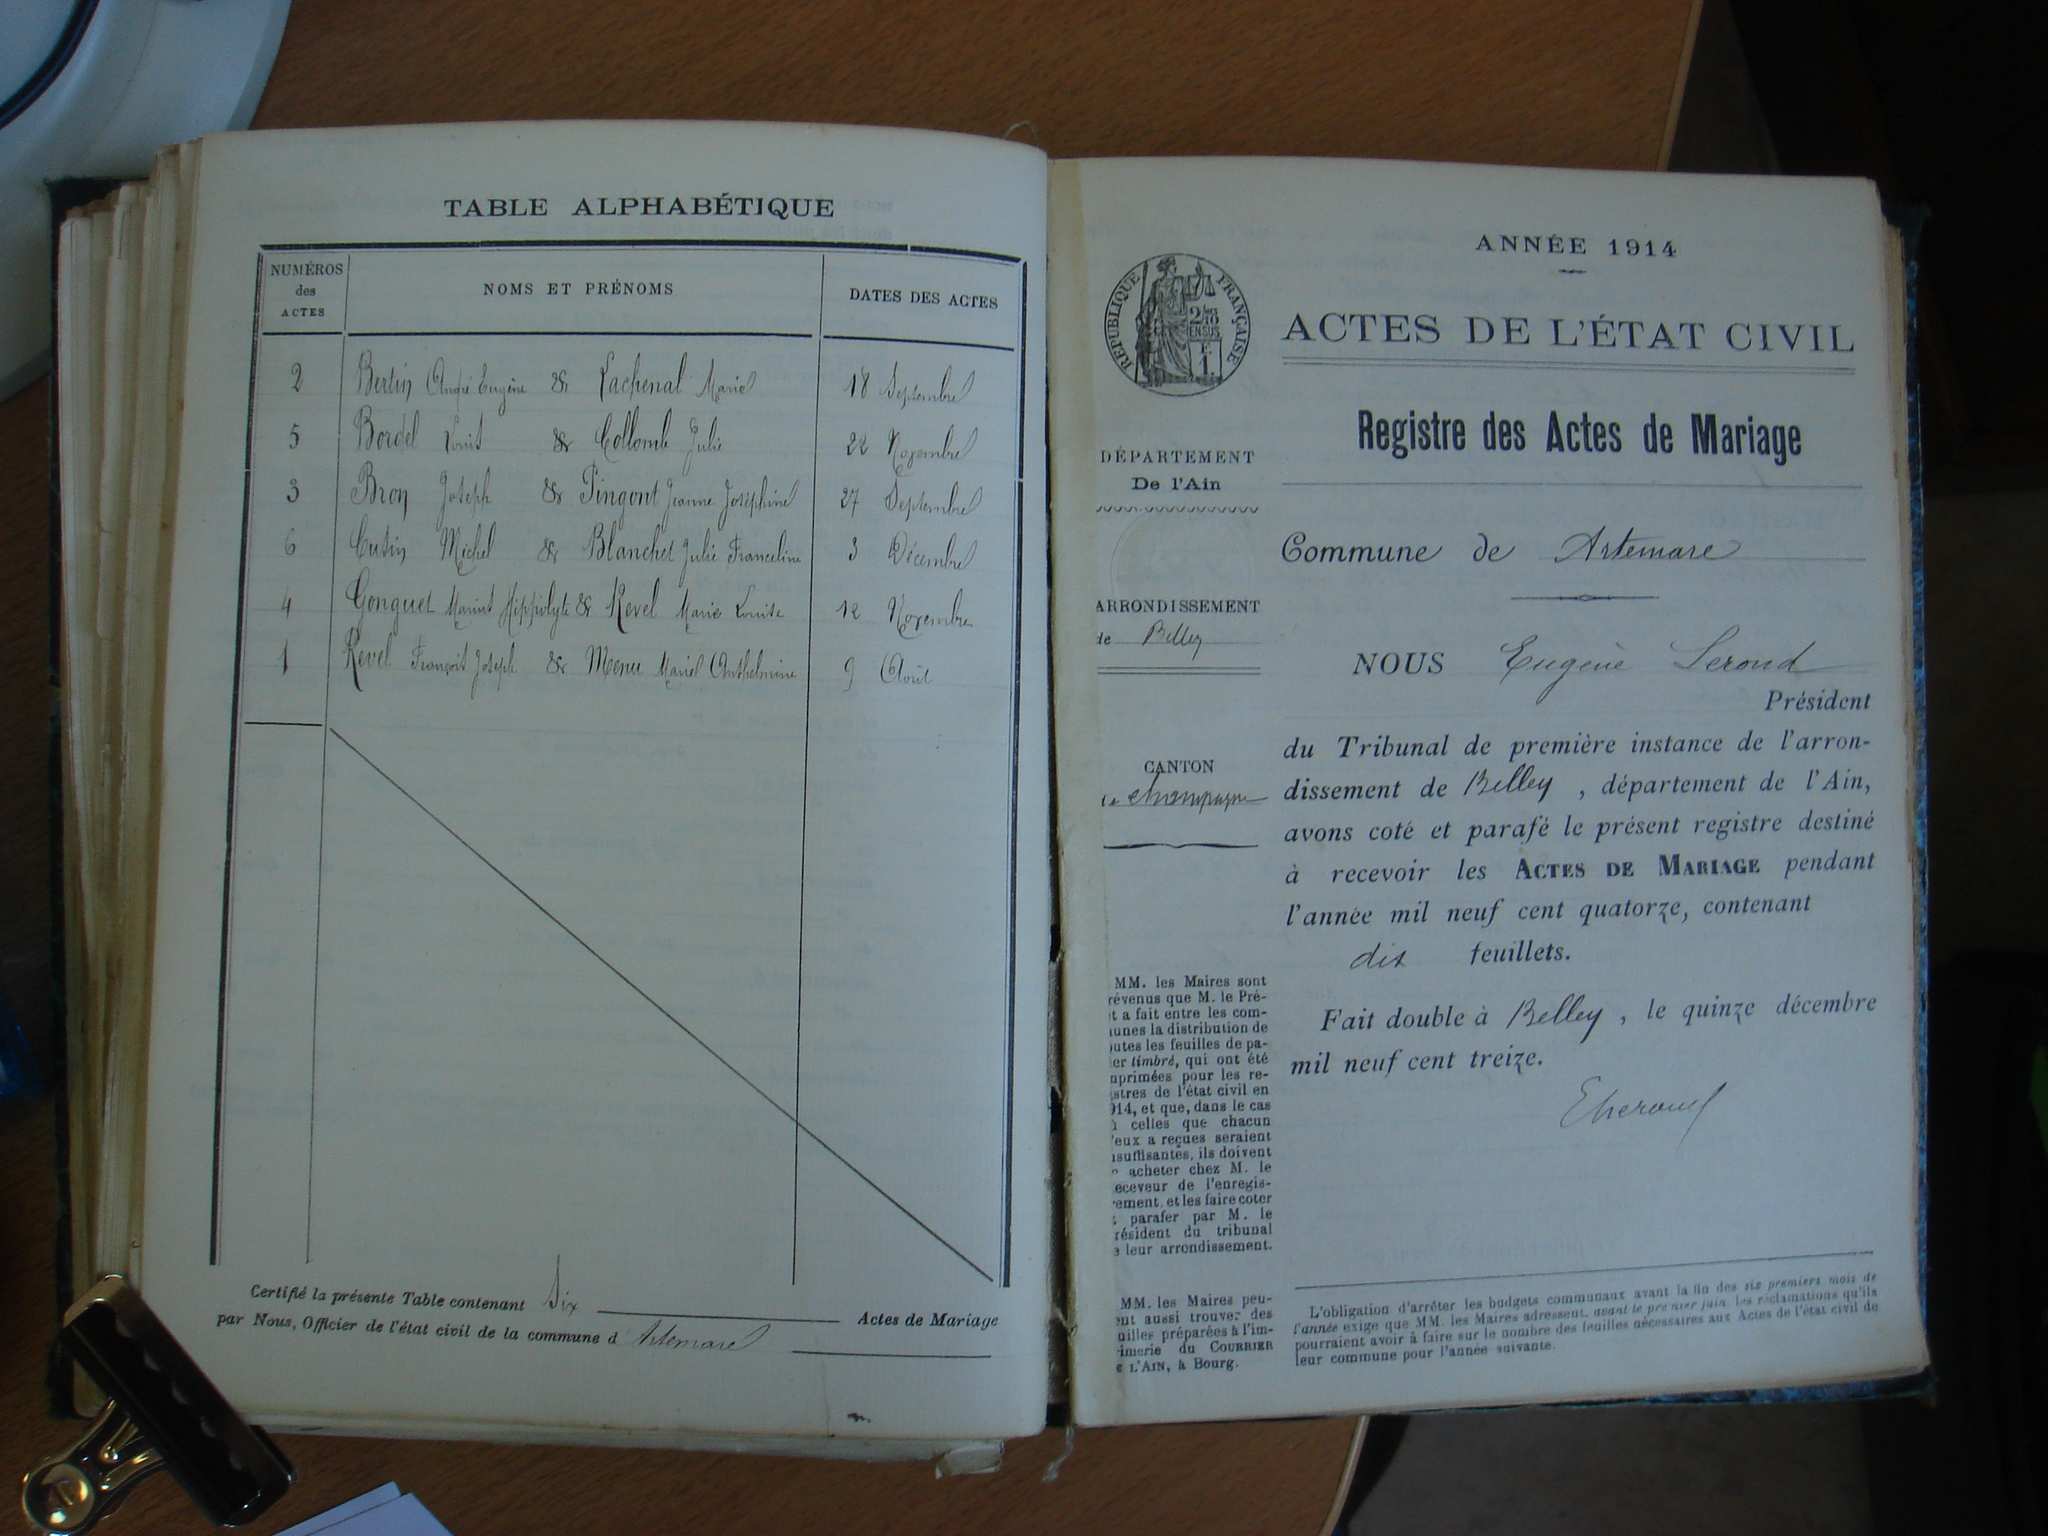 TABLE ALPHABÉTIQUE
NUMÉROS des ACTES
NOMS ET PRÉNOMS
DATES DES ACTES
2 Bertin André Eugène & Lachenal Marie 18 Septembre
5 Bordel Louis & Collomb Julie 22 Novembre
3 Bron Joseph & Pingont Jeanne Joséphine 27 Septembre
6 Cutin Michel & Blanchet Julie Franceline 3 Décembre
4 Gonguet Marius Hippolyte & Revel Marie Louise 12 Novembre
1 Revel François Joseph & Menu Marie Anthelmine 9 Avril
Certifié la présente Table contenant Six Actes de Mariage
par Nous, Officier de l'état civil de la commune d Artemare
ANNÉE 1914
ACTES DE L'ÉTAT CIVIL
Registre des Actes de Mariage
RÉPUBLIQUE FRANÇAISE
2/10 EN SUS
1 F.
DÉPARTEMENT
De l'Ain
Commune de Artemare
ARRONDISSEMENT
de Belley
NOUS Eugène Lerond
Président
du Tribunal de première instance de l'arron-
dissement de Belley, département de l'Ain,
avons coté et parafé le présent registre destiné
à recevoir les ACTES DE MARIAGE pendant
l'année mil neuf cent quatorze, contenant
dix feuillets.
Fait double à Belley, le quinze décembre
mil neuf cent treize.
CANTON
de Champagne
MM. les Maires sont
révenus que M. le Pré-
t a fait entre les com-
unes la distribution de
outes les feuilles de pa-
er timbré, qui ont été
mprimées pour les re-
istres de l'état civil en
914, et que, dans le cas
ù celles que chacun
'eux a reçues seraient
nsuffisantes, ils doivent
acheter chez M. le
eceveur de l'enregis-
rement, et les faire coter
t parafer par M. le
résident du tribunal
e leur arrondissement.
MM. les Maires peu-
ent aussi trouver des
uilles préparées à l'im-
rimerie du COURRIER
e L'AIN, à Bourg.
L'obligation d'arrêter les budgets communaux avant la fin des six premiers mois de
l'année exige que MM. les Maires adressent, avant le premier juin, les réclamations qu'ils
pourraient avoir à faire sur le nombre des feuilles nécessaires aux Actes de l'état civil de
leur commune pour l'année suivante.